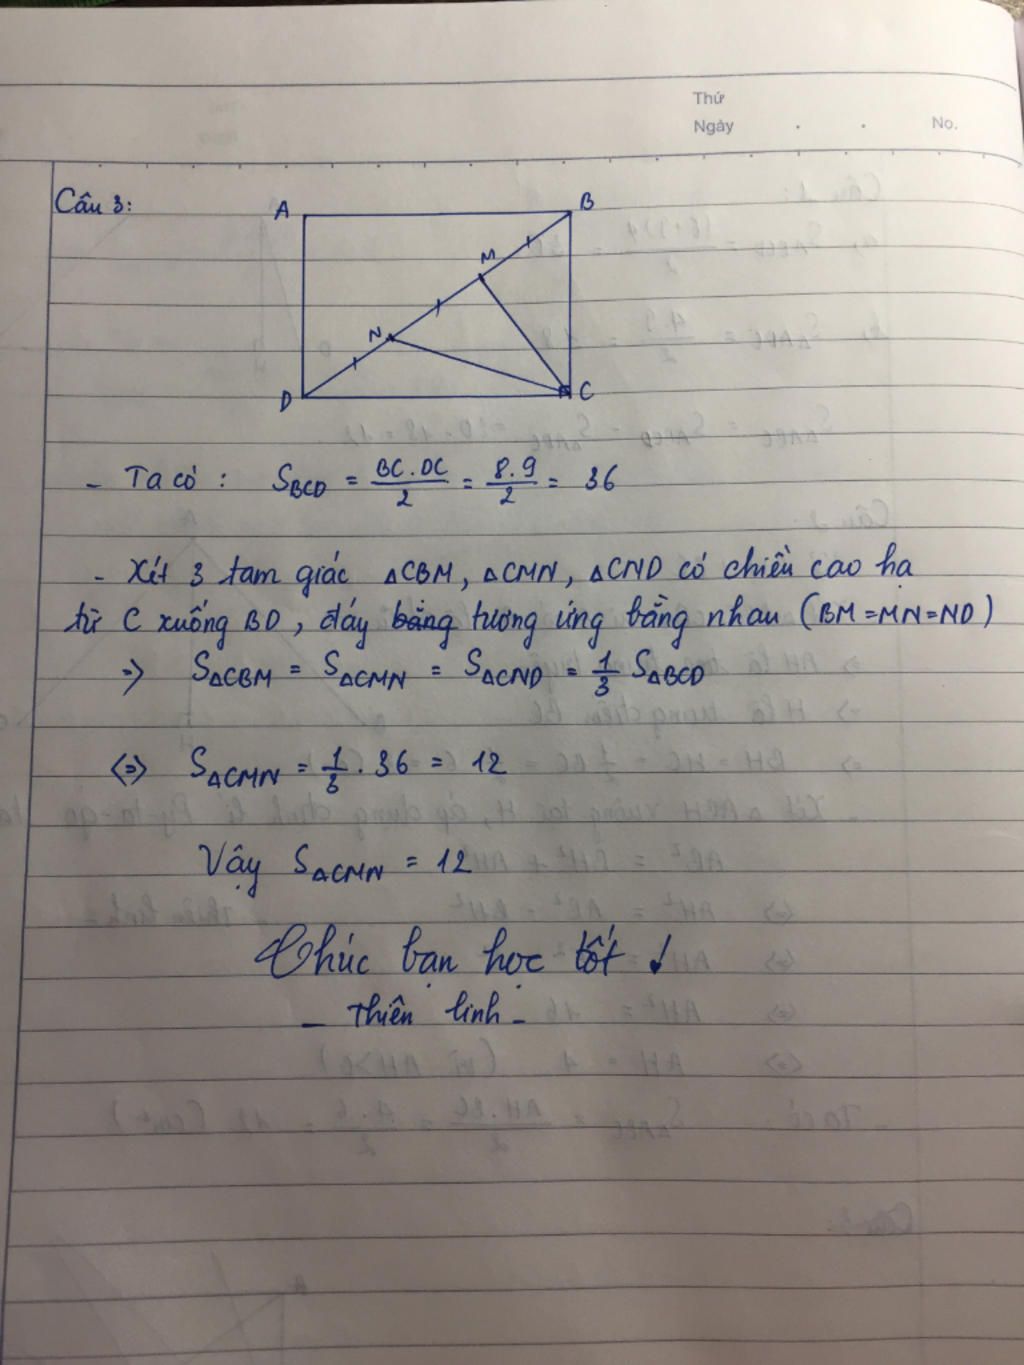 Thứ
Ngày . . No.
Câu 3:
A B
M
N
D C
- Ta có : S_BCD = \frac{BC.DC}{2} = \frac{8.9}{2} = 36
- Xét 3 tam giác △CBM, △CMN, △CND có chiều cao hạ
từ C xuống BD, đáy bằng tương ứng bằng nhau (BM=MN=ND)
=> S△CBM = S△CMN = S△CND = \frac{1}{3} S△BCD
<=> S△CMN = \frac{1}{3} . 36 = 12
Vậy S△CMN = 12
Chúc bạn học tốt !
- Thiên linh -